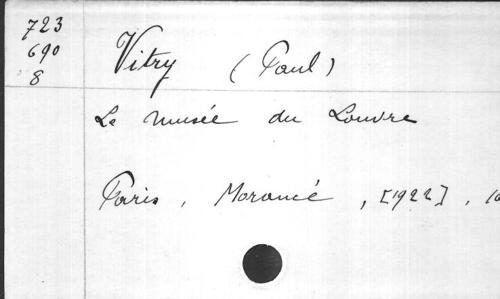 723
690
8
Vitry (Paul)
Le musée du Louvre
Paris, Morancé, [1922], 16